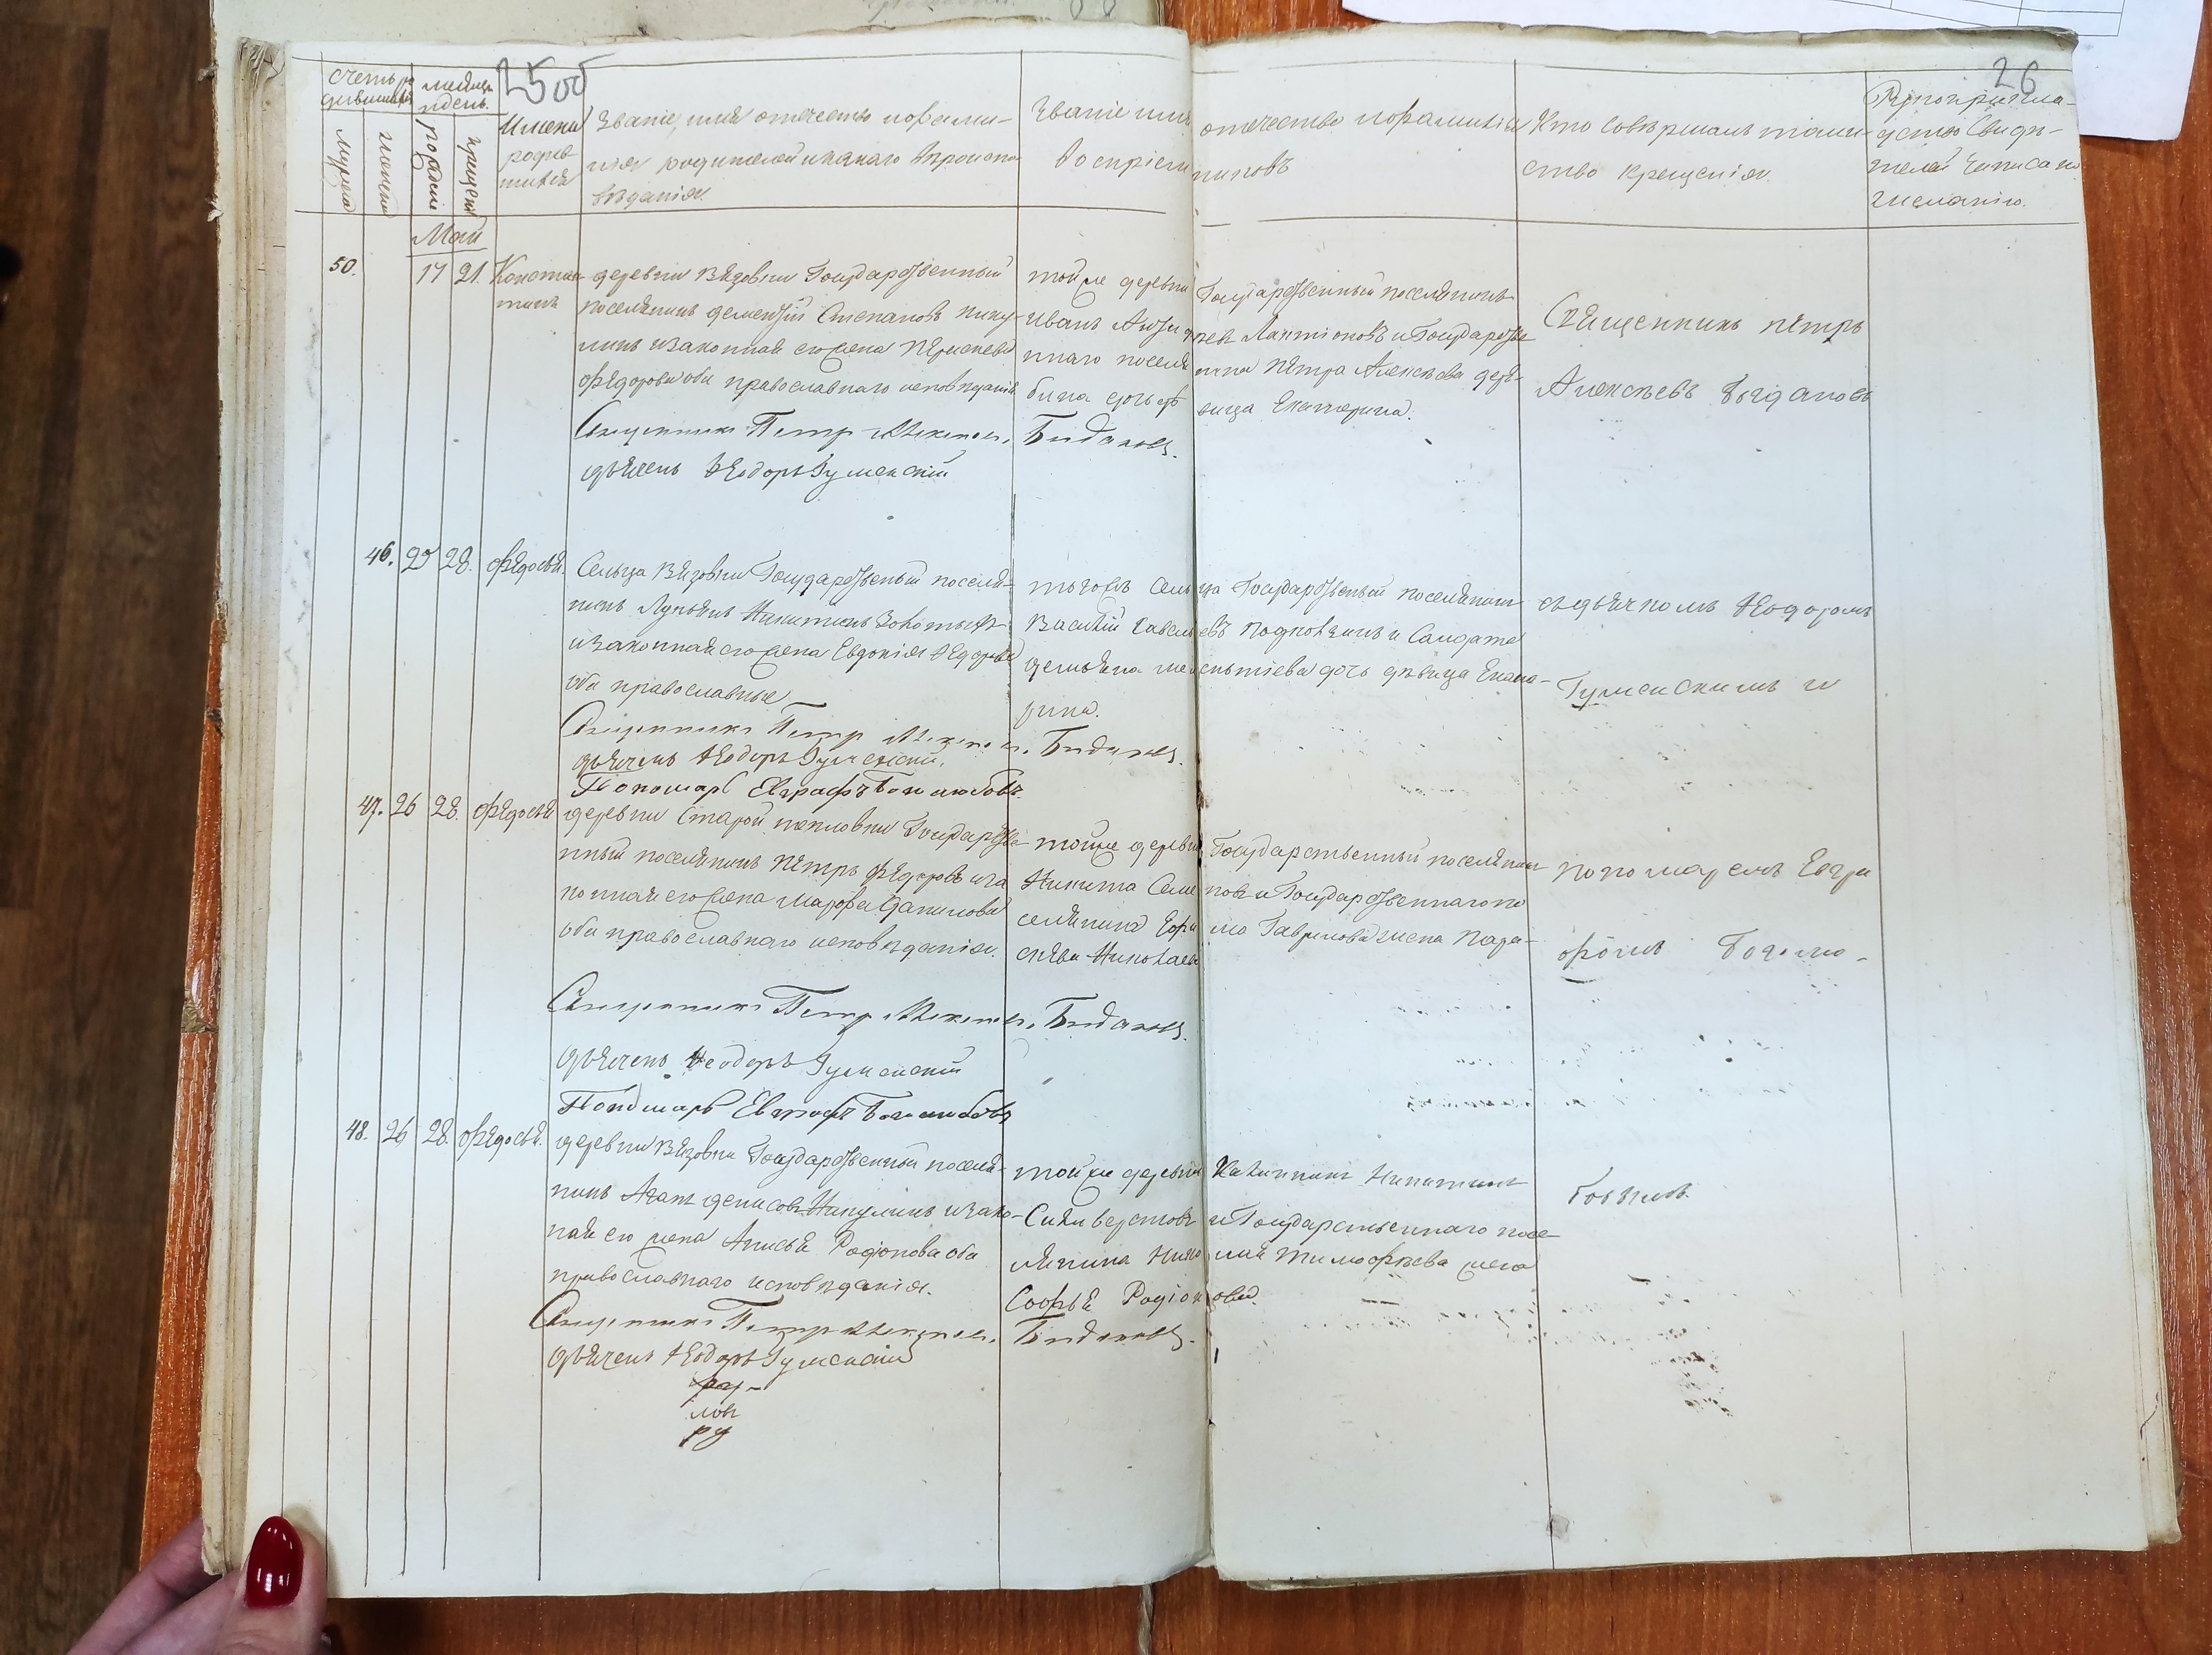 26
счетъ ро
дившихся
мѣсяцъ
и день.
мужеска
женска
рожденія
крещенія
Имена
родив
шихся
Званіе, имя отечество и фами-
лія родителей и какаго вѣроиспо
вѣданія.
Званіе имя отечество и фамилія
воспріемниковъ
Кто совершалъ таин-
ство крещенія
Рукоприкла-
дство свидѣ-
телей записи по
желанію.
Май
50. 17 21. Констан
тинъ
деревни Вязовки Государственный
поселянинъ Дементій Степановъ Нику-
линъ и законная его жена
Ѳедорова оба православнаго исповѣданія
Священникъ Петр Алексеев. Быдановъ.
дьячекъ Ѳеодоръ Гуменскій
той же деревни Государственный поселянинъ
Иванъ Ларионовъ и Государстве
ннаго поселянина Петра Алексѣева
дочь девица Екатерина.
Священникъ петръ
Алексѣевъ Быдановъ
46. 25 28. Ѳедосья.
Сельца Вязовки Государственный поселя-
нинъ Лукьянъ Никитинъ
и законная его жена Евдокія Ѳедорова
оба православные
Священникъ Петр Алексеев. Быдановъ.
дьячекъ Ѳеодоръ Гуменскій.
Пономарь Евграфъ Боголюбовъ
тогожъ сельца Государственный поселянинъ
Василій Савельевъ и Салдата
Демьяна дочь дѣвица Екате-
рина.
съ дьячкомъ Ѳеодоромъ
Гуменскимъ и
47. 26 28. Ѳедосья
деревни Старой Государстве
нный поселянинъ Петръ Ѳедоровъ и за
конная его жена Марфа Данилова
оба православнаго исповѣданія.
Священникъ Петр Алексеев. Быдановъ.
дьячекъ Ѳеодоръ Гуменскій
Пономарь Евграфъ Боголюбовъ
той же деревни Государственный поселянин
Никита Семеновъ и Государственнаго по
селянина Ефима Гаврилова жена Пара-
скева Николаева
пономаремъ Евгра
фомъ Боголю-
48. 26 28. Ѳедосья.
деревни Вязовки Государственный поселя-
нинъ Агапъ Денисовъ Никулинъ и зако-
ная его жена Анисья Родіонова оба
православнаго исповѣданія.
Священникъ Петр Алексеев. Быдановъ.
дьячекъ Ѳеодоръ Гуменскій
той же деревни Калинникъ Никитинъ
Силиверстовъ и Государственнаго посе-
лянина Тимофѣева жена
Софья Родіонова.
бовымъ.